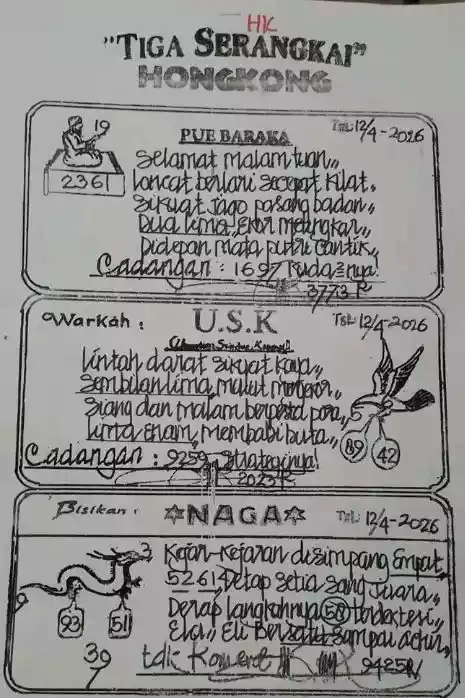 HK
"TIGA SERANGKAI"
HONGKONG
TGL: 12/4-2026
19
2361
PUE BARAKA
Selamat malam tuan,,
loncat berlari secepat kilat.
Sikuat jago pasang badan,,
Dua lima, Ekor
Didepan mata putri cantik,,
Cadangan : 1697 Kuda²nya!
3773 R
Warkah :
U.S.K
TGL: 12/4-2026
lintah darat sikuat kaya,,
Sembilan lima,
Siang dan malam berpesta pora,,
lima enam, membabi buta,,
5
89
42
Cadangan : 9259 Strateginya!
2023 R
Bisikan :
☆NAGA☆
TGL: 12/4-2026
3
9
93
51
39
7
Kejar-kejaran disimpang Empat,
5261, Tetap setia sang Juara,,
Derap langkahnya 58 terdeteksi,,
Bersatu sampai
tdk Koment
9425 R